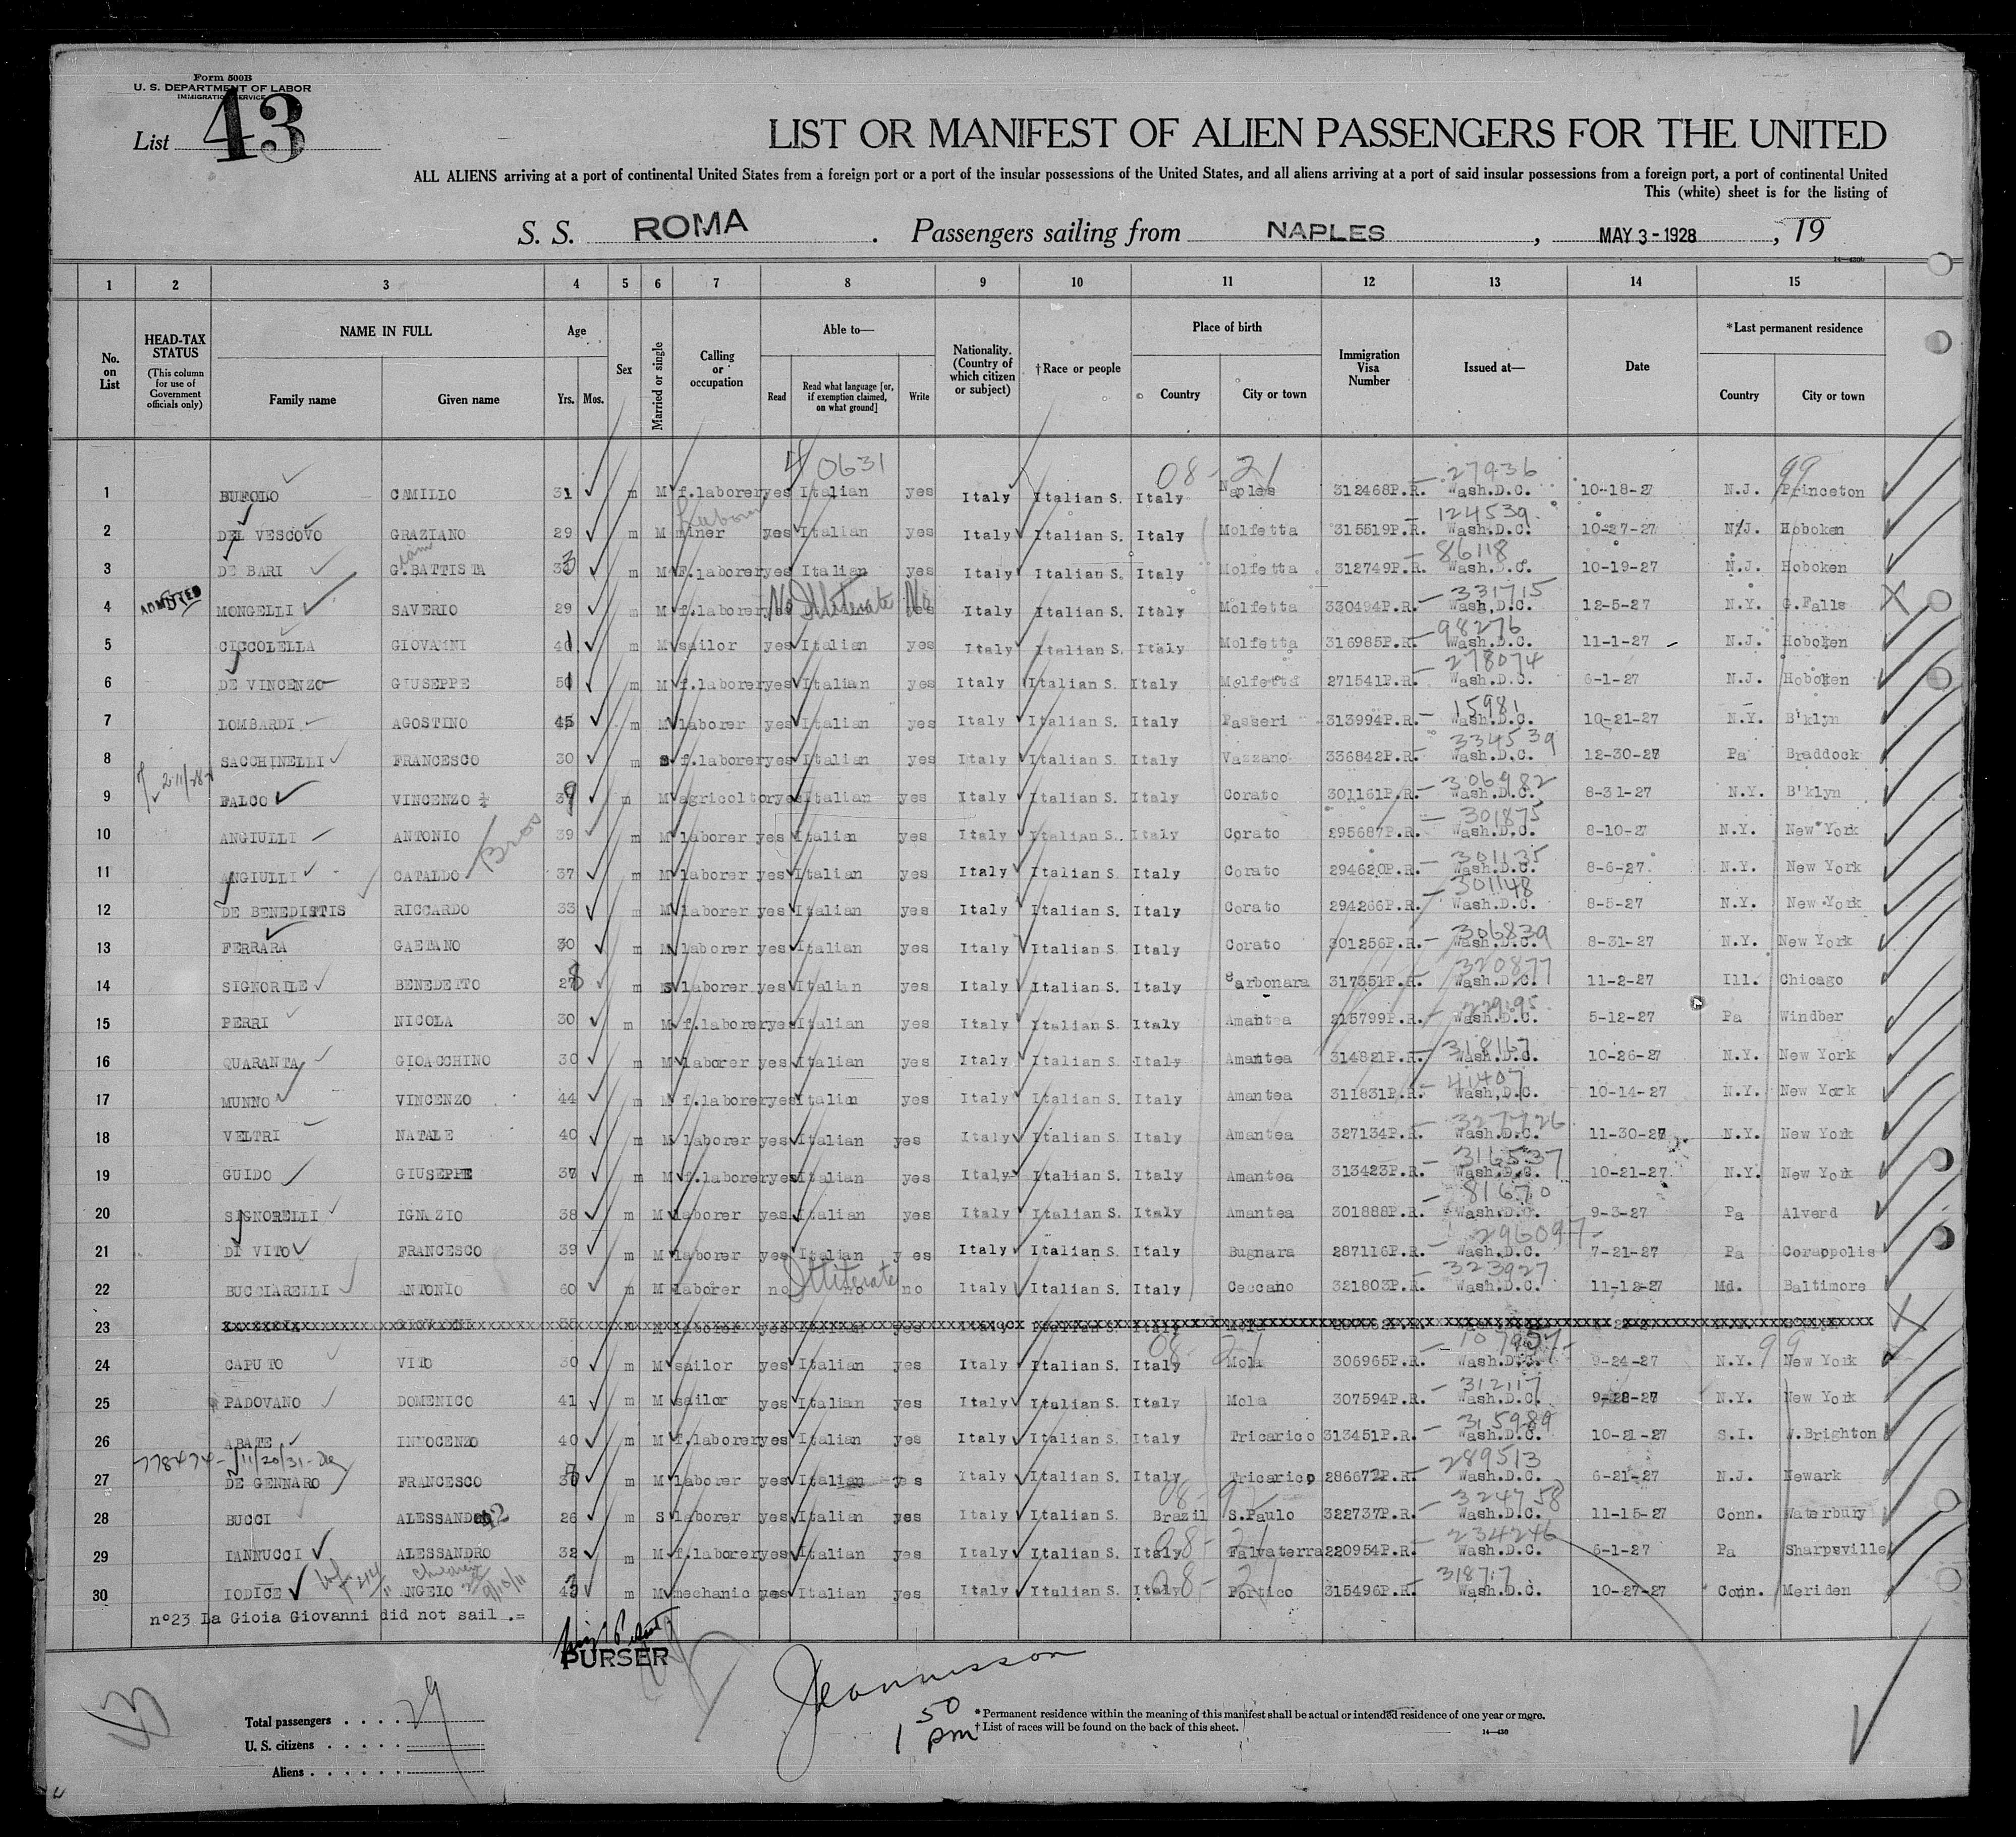 Form 500B
U. S. DEPARTMENT OF LABOR
IMMIGRATION SERVICE
List 43
LIST OR MANIFEST OF ALIEN PASSENGERS FOR THE UNITED
ALL ALIENS arriving at a port of continental United States from a foreign port or a port of the insular possessions of the United States, and all aliens arriving at a port of said insular possessions from a foreign port, a port of continental United
This (white) sheet is for the listing of
S. S. ROMA . Passengers sailing from NAPLES , MAY 3-1928 , 19
1 2 3 4 5 6 7 8 9 10 11 12 13 14 15
No. on List HEAD-TAX STATUS (This column for use of Government officials only) NAME IN FULL Family name Given name Age Yrs. Mos. Sex Married or single Calling or occupation Able to— Read Read what language [or, if exemption claimed, on what ground] Write Nationality. (Country of which citizen or subject) †Race or people Place of birth Country City or town Immigration Visa Number Issued at— Date *Last permanent residence Country City or town
40631 08-21 27936 99
1 BUFOLO CAMILLO 31 m M f.laborer yes Italian yes Italy Italian S. Italy Naples 312468P.R. Wash.D.C. 10-18-27 N.J. Princeton
Laborer 124539
2 DEL VESCOVO GRAZIANO 29 m M miner yes Italian yes Italy Italian S. Italy Molfetta 315519P.R. Wash.D.C. 10-27-27 N.J. Hoboken
86118
3 DE BARI G.BATTISTA 33 m M F.laborer yes Italian yes Italy Italian S. Italy Molfetta 312749P.R. Wash.D.C. 10-19-27 N.J. Hoboken
331715
4 ADMITTED MONGELLI SAVERIO 29 m M f.laborer No Illiterate No Italy Italian S. Italy Molfetta 330494P.R. Wash.D.C. 12-5-27 N.Y. G.Falls
98276
5 CICCOLELLA GIOVANNI 41 m M sailor yes Italian yes Italy Italian S. Italy Molfetta 316985P.R. Wash.D.C. 11-1-27 N.J. Hoboken
278074
6 DE VINCENZO GIUSEPPE 51 m M f.laborer yes Italian yes Italy Italian S. Italy Molfetta 271541P.R. Wash.D.C. 6-1-27 N.J. Hoboken
15981
7 LOMBARDI AGOSTINO 45 m M laborer yes Italian yes Italy Italian S. Italy Passeri 313994P.R. Wash.D.C. 10-21-27 N.Y. B'klyn
334539
8 SACCHINELLI FRANCESCO 30 m S f.laborer yes Italian yes Italy Italian S. Italy Vazzano 336842P.R. Wash.D.C. 12-30-27 Pa Braddock
306982
9 FALCO VINCENZO 39 m M agricoltor yes Italian yes Italy Italian S. Italy Corato 301161P.R. Wash.D.C. 8-31-27 N.Y. B'klyn
Bros 301875
10 ANGIULLI ANTONIO 39 m M laborer yes Italian yes Italy Italian S. Italy Corato 295687P.R. Wash.D.C. 8-10-27 N.Y. New York
301135
11 ANGIULLI CATALDO 37 m M laborer yes Italian yes Italy Italian S. Italy Corato 294620P.R. Wash.D.C. 8-6-27 N.Y. New York
301148
12 DE BENEDISTIS RICCARDO 33 m M laborer yes Italian yes Italy Italian S. Italy Corato 294266P.R. Wash.D.C. 8-5-27 N.Y. New York
306839
13 FERRARA GAETANO 30 m M laborer yes Italian yes Italy Italian S. Italy Corato 301256P.R. Wash.D.C. 8-31-27 N.Y. New York
320877
14 SIGNORILE BENEDETTO 28 m S laborer yes Italian yes Italy Italian S. Italy Carbonara 317351P.R. Wash.D.C. 11-2-27 Ill. Chicago
15 PERRI NICOLA 30 m M f.laborer yes Italian yes Italy Italian S. Italy Amantea 215799P.R. Wash.D.C. 5-12-27 Pa Windber
318167
16 QUARANTA GIOACCHINO 30 m M laborer yes Italian yes Italy Italian S. Italy Amantea 314821P.R. Wash.D.C. 10-26-27 N.Y. New York
41407
17 MUNNO VINCENZO 44 m M f.laborer yes Italian yes Italy Italian S. Italy Amantea 311831P.R. Wash.D.C. 10-14-27 N.Y. New York
327726
18 VELTRI NATALE 40 m M laborer yes Italian yes Italy Italian S. Italy Amantea 327134P.R. Wash.D.C. 11-30-27 N.Y. New York
316537
19 GUIDO GIUSEPPE 37 m M f.laborer yes Italian yes Italy Italian S. Italy Amantea 313423P.R. Wash.D.C. 10-21-27 N.Y. New York
81670
20 SIGNORELLI IGNAZIO 38 m M laborer yes Italian yes Italy Italian S. Italy Amantea 301888P.R. Wash.D.C. 9-3-27 Pa Alverd
296097
21 DI VITO FRANCESCO 39 m M laborer yes Italian yes Italy Italian S. Italy Bugnara 287116P.R. Wash.D.C. 7-21-27 Pa Coraopolis
Illiterate 323927
22 BUCCIARELLI ANTONIO 60 m M laborer no no no Italy Italian S. Italy Ceccano 321803P.R. Wash.D.C. 11-12-27 Md. Baltimore
23 GIOVANNI m M laborer yes Italian yes Italian S. Italy Mola
08-21 99
24 CAPUTO VITO 30 m M sailor yes Italian yes Italy Italian S. Italy Mola 306965P.R. Wash.D.C. 9-24-27 N.Y. New York
312117
25 PADOVANO DOMENICO 41 m M sailor yes Italian yes Italy Italian S. Italy Mola 307594P.R. Wash.D.C. 9-28-27 N.Y. New York
315989
26 ABATE INNOCENZO 40 m M f.laborer yes Italian yes Italy Italian S. Italy Tricarico 313451P.R. Wash.D.C. 10-21-27 S.I. W.Brighton
778474- 11/20/31 289513
27 DE GENNARO FRANCESCO 37 m M laborer yes Italian yes Italy Italian S. Italy Tricarico 286672P.R. Wash.D.C. 6-21-27 N.J. Newark
324758
28 BUCCI ALESSANDRO 26 m S laborer yes Italian yes Italy Italian S. Brazil S.Paulo 322737P.R. Wash.D.C. 11-15-27 Conn. Waterbury
08-21 234246
29 IANNUCCI ALESSANDRO 32 m M f.laborer yes Italian yes Italy Italian S. Italy Falvaterra 220954P.R. Wash.D.C. 6-1-27 Pa Sharpsville
08-21 318717
30 IODICE ANGELO 43 m M mechanic yes Italian yes Italy Italian S. Italy Portico 315496P.R. Wash.D.C. 10-27-27 Conn. Meriden
n°23 La Gioia Giovanni did not sail .=
PURSER
1 50 pm
Total passengers . . . . 29
U. S. citizens . . . . .
Aliens . . . . . .
* Permanent residence within the meaning of this manifest shall be actual or intended residence of one year or more.
† List of races will be found on the back of this sheet.
14—430